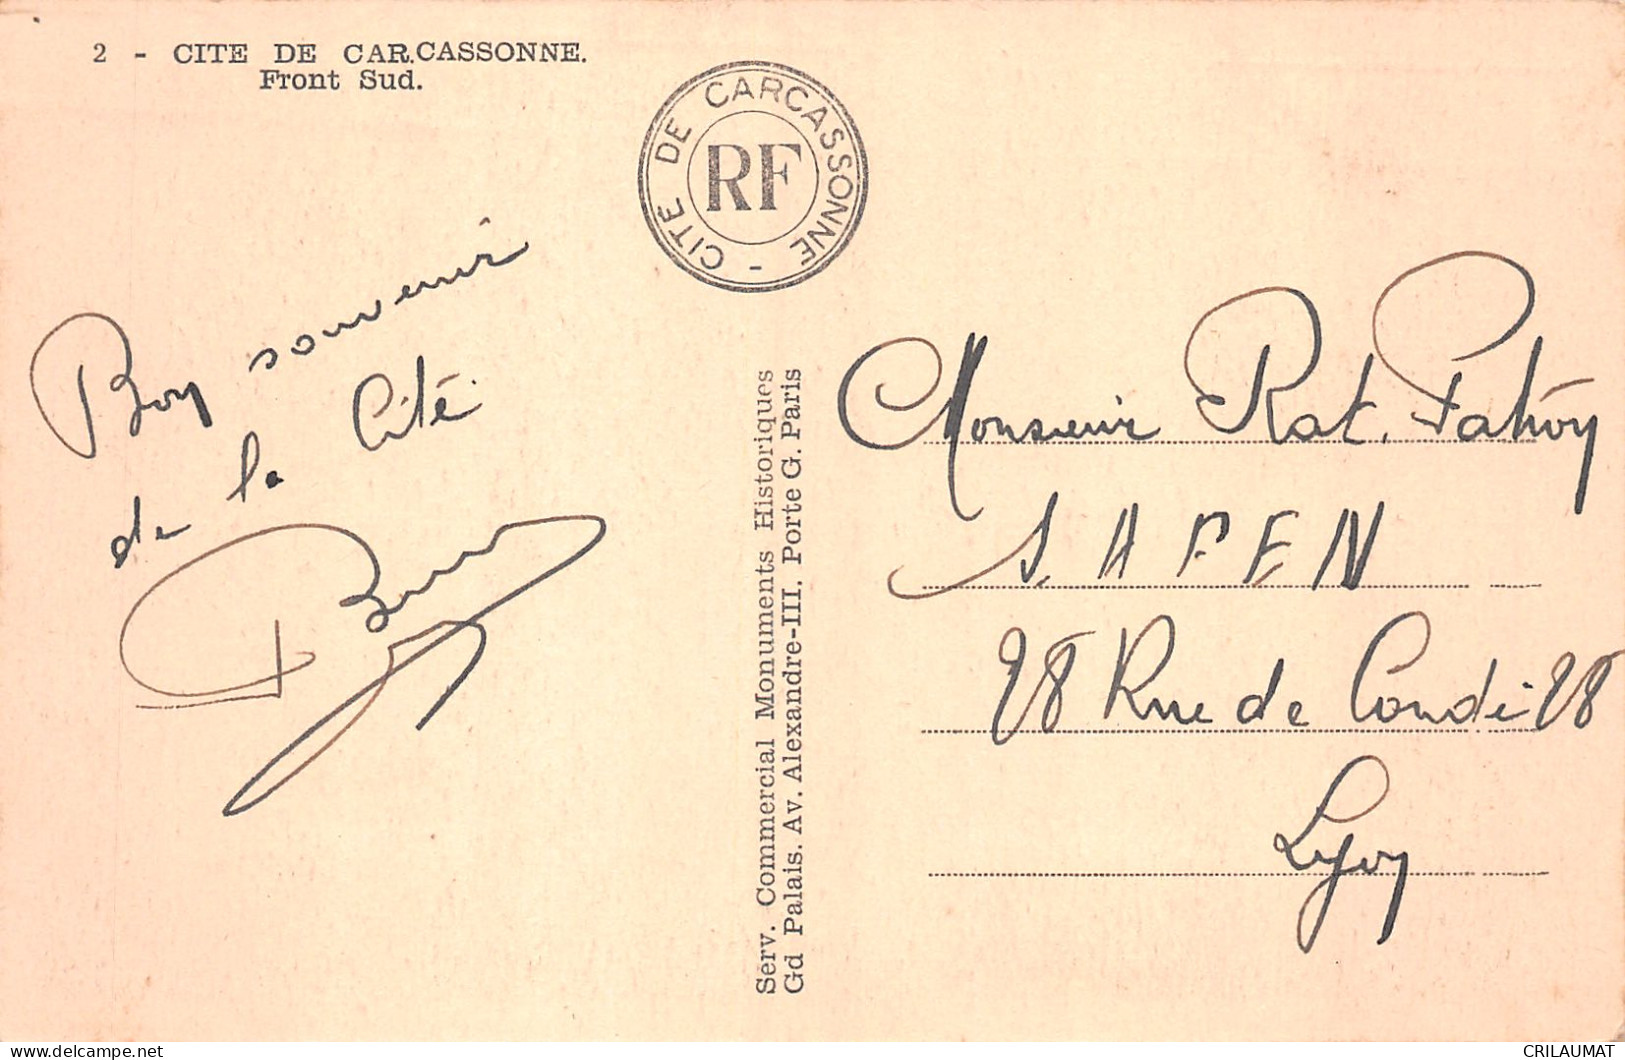 2 - CITE DE CARCASSONNE.
Front Sud.
CITE DE CARCASSONNE -
RF
Bon souvenir
de la Cité
Serv. Commercial Monuments Historiques
Gd Palais. Av. Alexandre-III. Porte G. Paris
Monsieur Rat. Patron
S.A.F.E.N
28 Rue de Condé 28
Lyon
CRILAUMAT